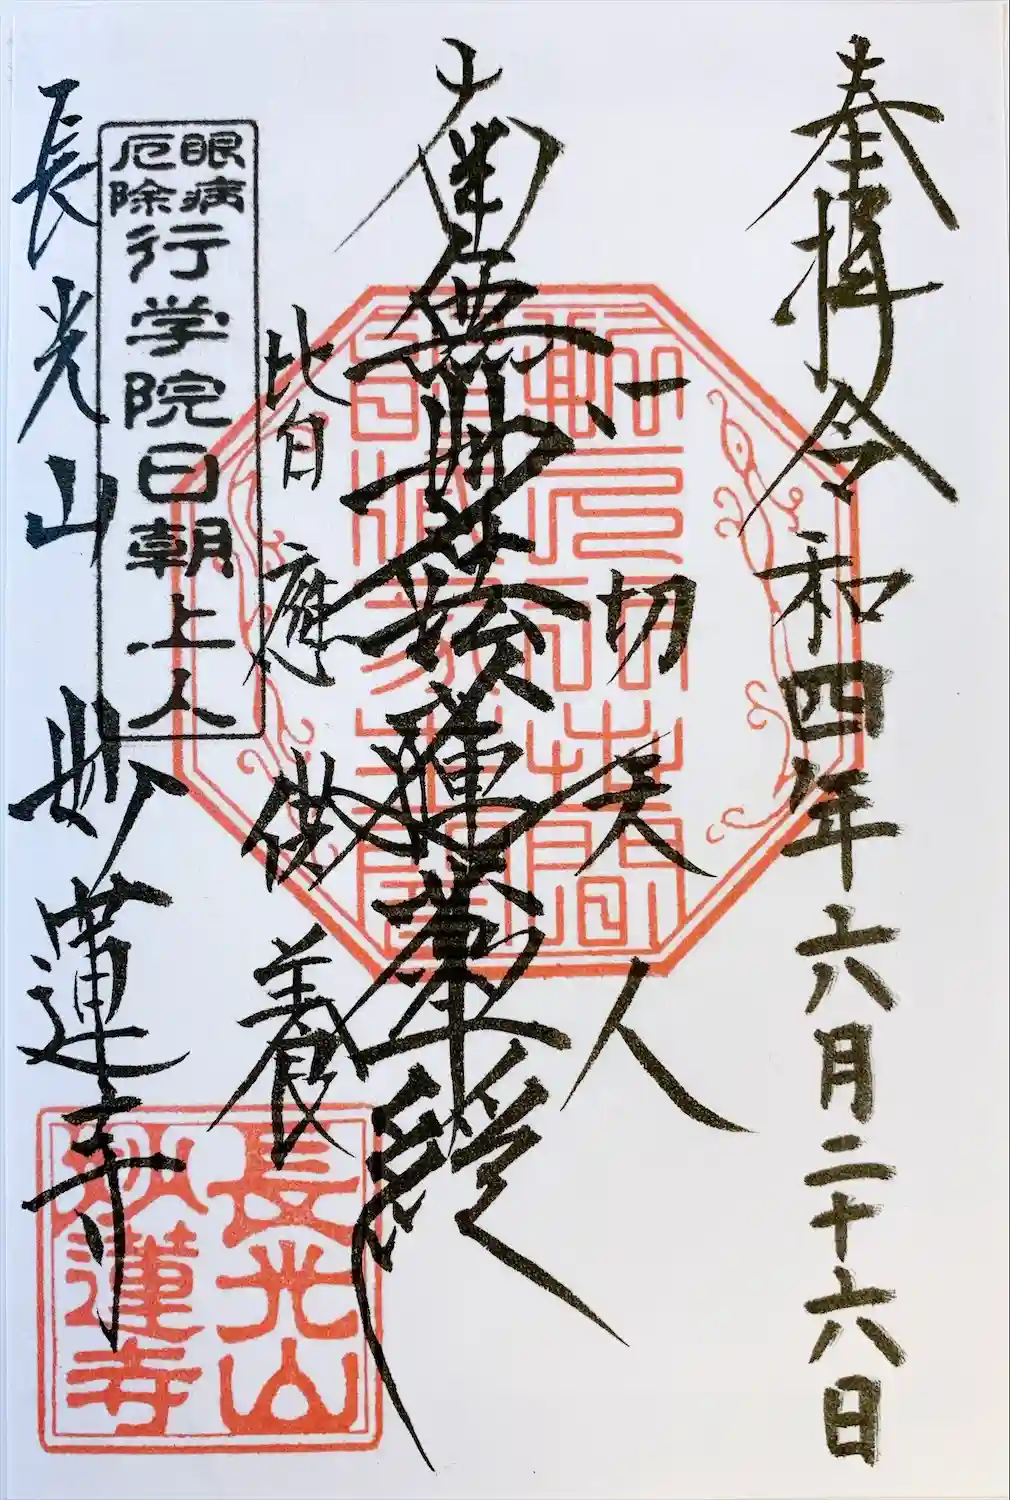 奉拝 令和四年 六月二十六日
一切天人
南無妙法蓮華経
皆應供養
眼病
厄除
行学院日朝上人
長光山 妙蓮寺
長光山
妙蓮寺